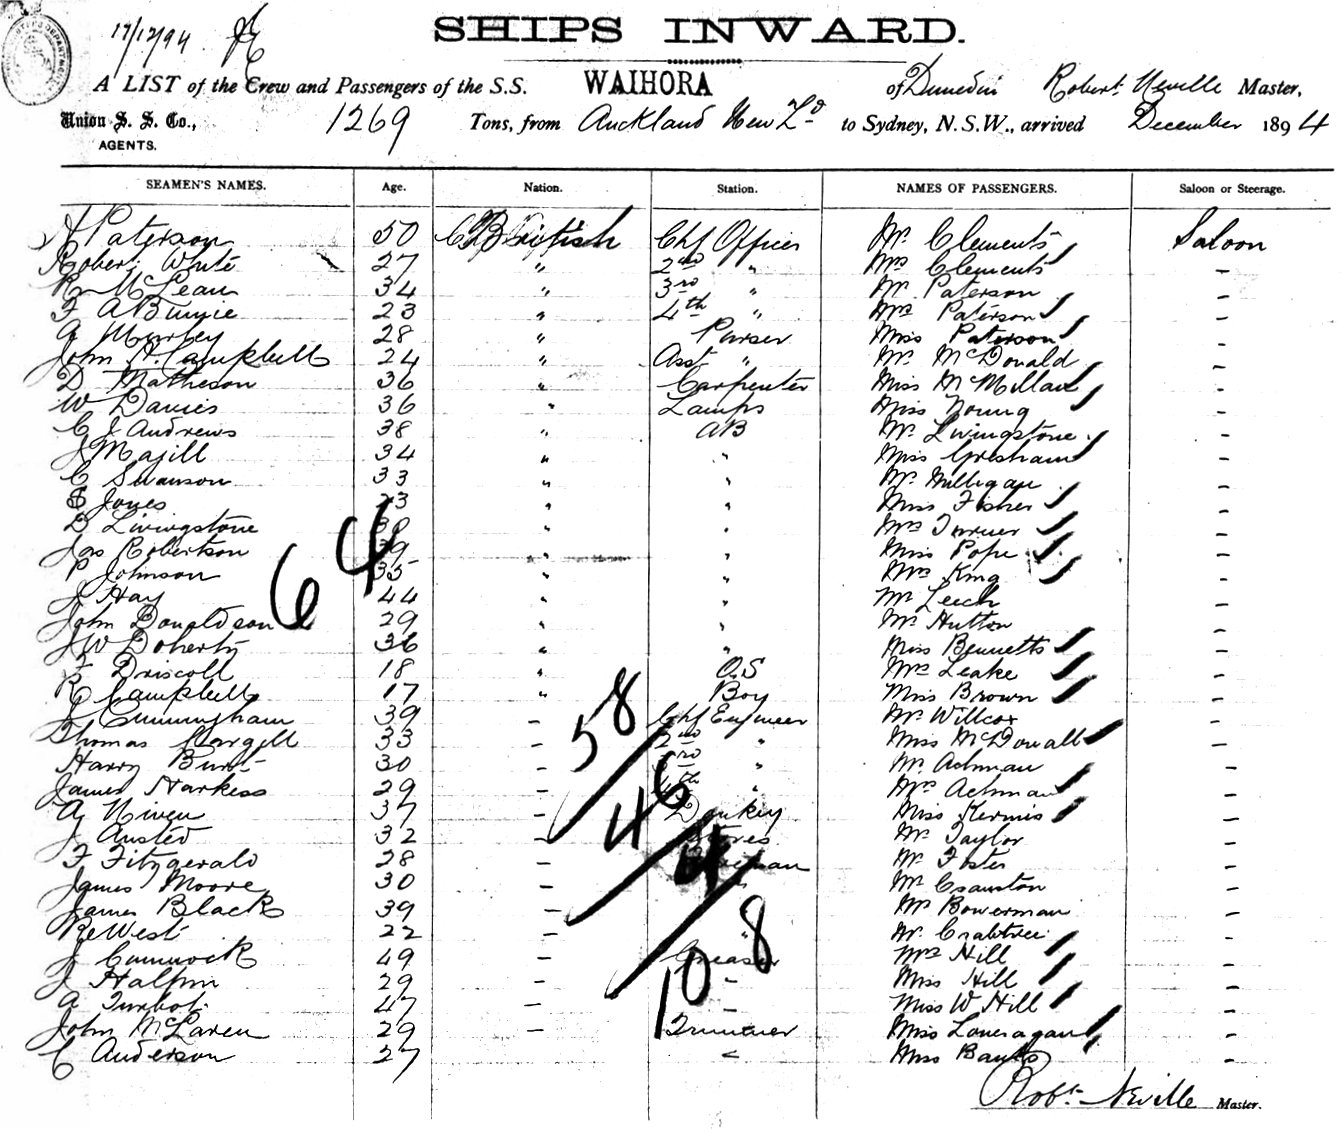 17/12/94
SHIPS INWARD.
A LIST of the Crew and Passengers of the S.S. WAIHORA of Dunedin Robert Neville Master,
Union S. S. Co., 1269 Tons, from Auckland New Zd to Sydney, N.S.W., arrived December 1894
AGENTS.
SEAMEN'S NAMES. Age. Nation. Station. NAMES OF PASSENGERS. Saloon or Steerage.
A Paterson 50 British Chf Officer Mr Clements Saloon
Robert White 27 " 2nd " Mrs Clements –
R McLean 34 " 3rd " Mr Paterson –
F A Binnie 23 " 4th " Mrs Paterson –
A Morley 28 " Purser Miss Paterson –
John P. Campbell 24 " Asst " Mr McDonald –
D Matheson 36 " Carpenter Miss McMillan –
W Davies 36 " Lamps Miss Young –
C J Andrews 38 " AB Mr Livingstone –
J Magill 34 " " Miss Gresham –
C Swanson 33 " " Mr Milligan –
Jones 23 " " Miss Fisher –
D Livingstone " " Mrs Turner –
Jas Robertson 39 " " Miss Pope –
P Johnson 35 " " Mrs King –
J Hay 44 " " Mr Leech –
John Donaldson 29 " " Mr Hutton –
J W Doherty 36 " " Miss Bennetts –
Driscoll 18 " O.S Mrs Leake –
R Campbell 17 " Boy Miss Brown –
J Cunningham 39 – Chf Engineer Mr Willcox –
Thomas Cargill 33 – 2nd " Miss McDonall –
Harry Burt 30 – 3rd " Mr Achman –
James Harkess 29 – 4th " Mrs Achman –
A Niven 37 – Donkey Miss Kermis –
J Austed 32 – Stores Mr Taylor –
F Fitzgerald 28 – Fireman Mr Foster –
James Moore 30 – Mr Cranston –
James Black 39 – Mr Bowerman –
R West 22 – Mr Crabtree –
J Cammock 49 – Greaser Mrs Hill –
J Halpin 29 – " Miss Hill –
A Turbot 47 – – Miss W Hill –
John McLaren 29 – Trimmer Miss Loneragan –
C Anderson 27 " Miss Banks –
64
58
46
4
108
Robt Neville Master.